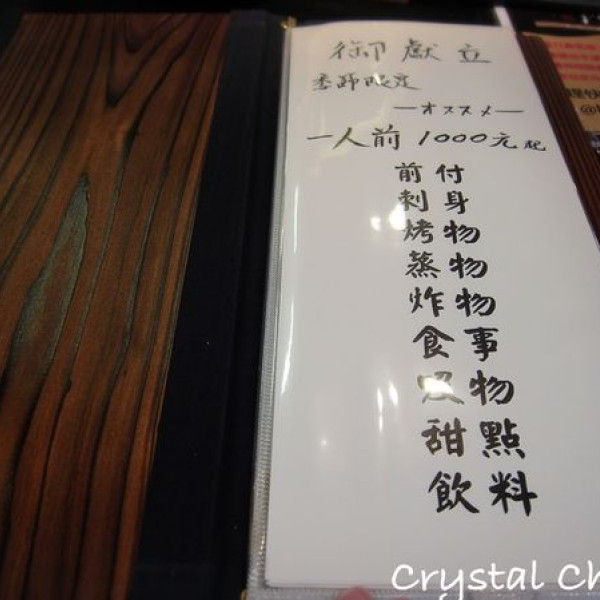 御獻立
季節限定
—オススメ—
一人前 1000元起
前付
刺身
烤物
蒸物
炸物
食事
吸物
甜點
飲料
Crystal Ch